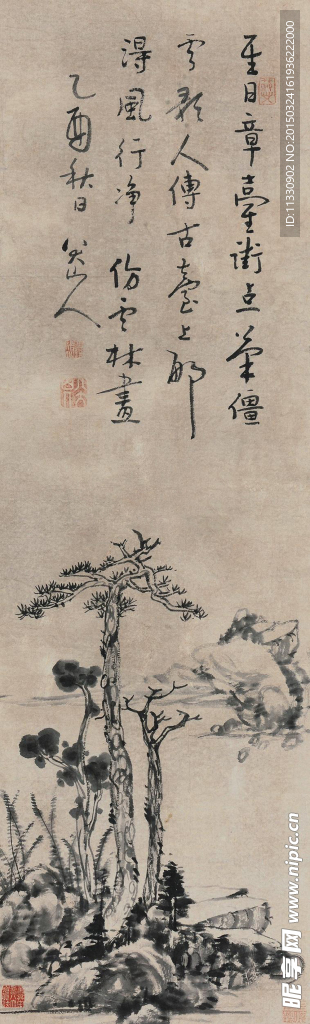 至日章臺街点筆僵
雲彩人傳古臺上那
得風行净仿雲林畫
乙酉秋日
八大山人
ID:11330902 NO:20150324161936222000
昵享网 www.nipic.cn